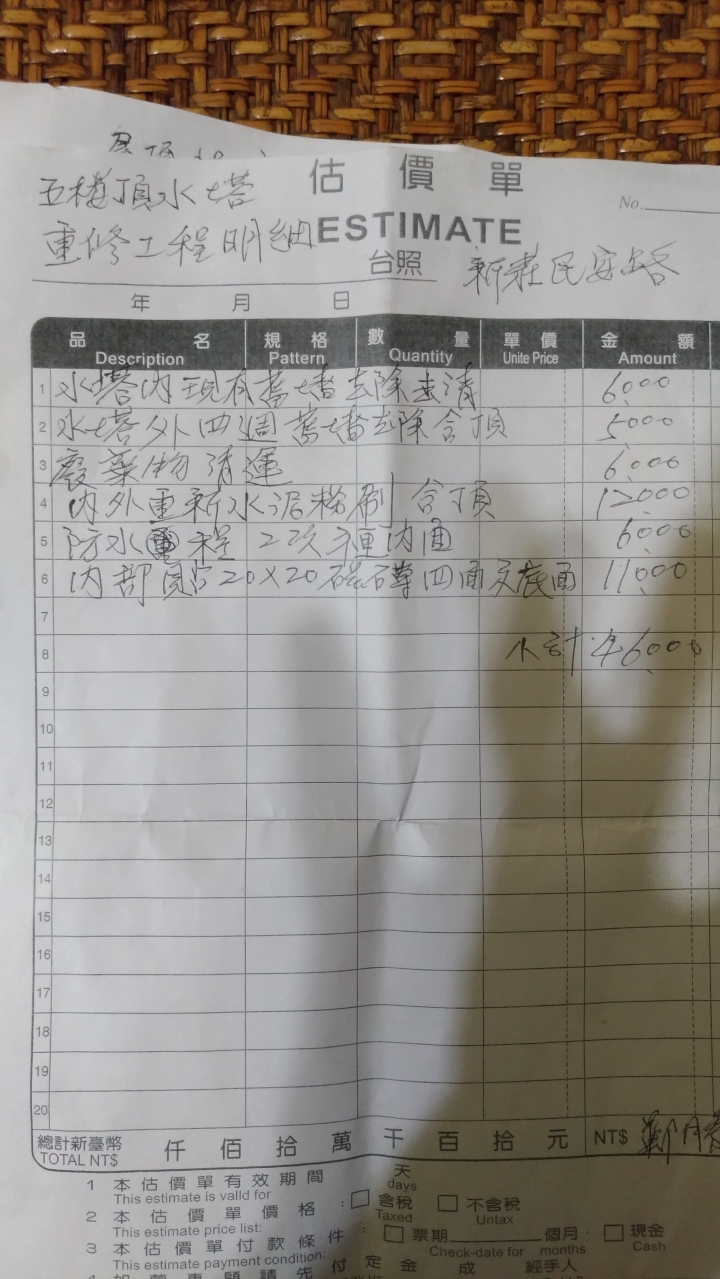 五樓頂水塔
重修工程明細
估價單
ESTIMATE
No.
台照
新莊民安路
年 月 日
品名 規格 數量 單價 金額
Description Pattern Quantity Unite Price Amount
1 水塔內現有舊墻去除清 6000
2 水塔外四週舊墻去除含頂 5000
3 廢棄物清運 6000
4 內外重新水泥粉刷 含頂 12000
5 防水程 二次 內面 6000
6 內部 20×20磁磚四面及底面 11000
7
8 小計 46000
9
10
11
12
13
14
15
16
17
18
19
20
總計新臺幣 仟佰拾萬千百拾元 NT$
TOTAL NT$
1 本估價單有效期間 天
This estimate is valld for days
2 本估價單價格: 含稅 不含稅
This estimate price list: Taxed Untax
3 本估價單付款條件: 票期 個月 現金
This estimate payment condition: Check-date for months Cash
付定金 成 經手人